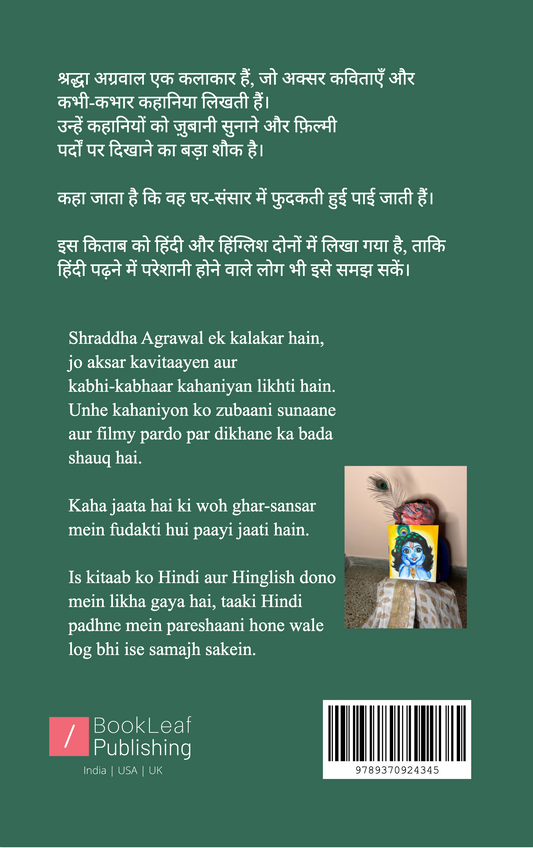 श्रद्धा अग्रवाल एक कलाकार हैं, जो अक्सर कविताएँ और
कभी-कभार कहानिया लिखती हैं।
उन्हें कहानियों को ज़ुबानी सुनाने और फ़िल्मी
पर्दों पर दिखाने का बड़ा शौक है।
कहा जाता है कि वह घर-संसार में फुदकती हुई पाई जाती हैं।
इस किताब को हिंदी और हिंग्लिश दोनों में लिखा गया है, ताकि
हिंदी पढ़ने में परेशानी होने वाले लोग भी इसे समझ सकें।
Shraddha Agrawal ek kalakar hain,
jo aksar kavitaayen aur
kabhi-kabhaar kahaniyan likhti hain.
Unhe kahaniyon ko zubaani sunaane
aur filmy pardo par dikhane ka bada
shauq hai.
Kaha jaata hai ki woh ghar-sansar
mein fudakti hui paayi jaati hain.
Is kitaab ko Hindi aur Hinglish dono
mein likha gaya hai, taaki Hindi
padhne mein pareshaani hone wale
log bhi ise samajh sakein.
BookLeaf
Publishing
India | USA | UK
9789370924345